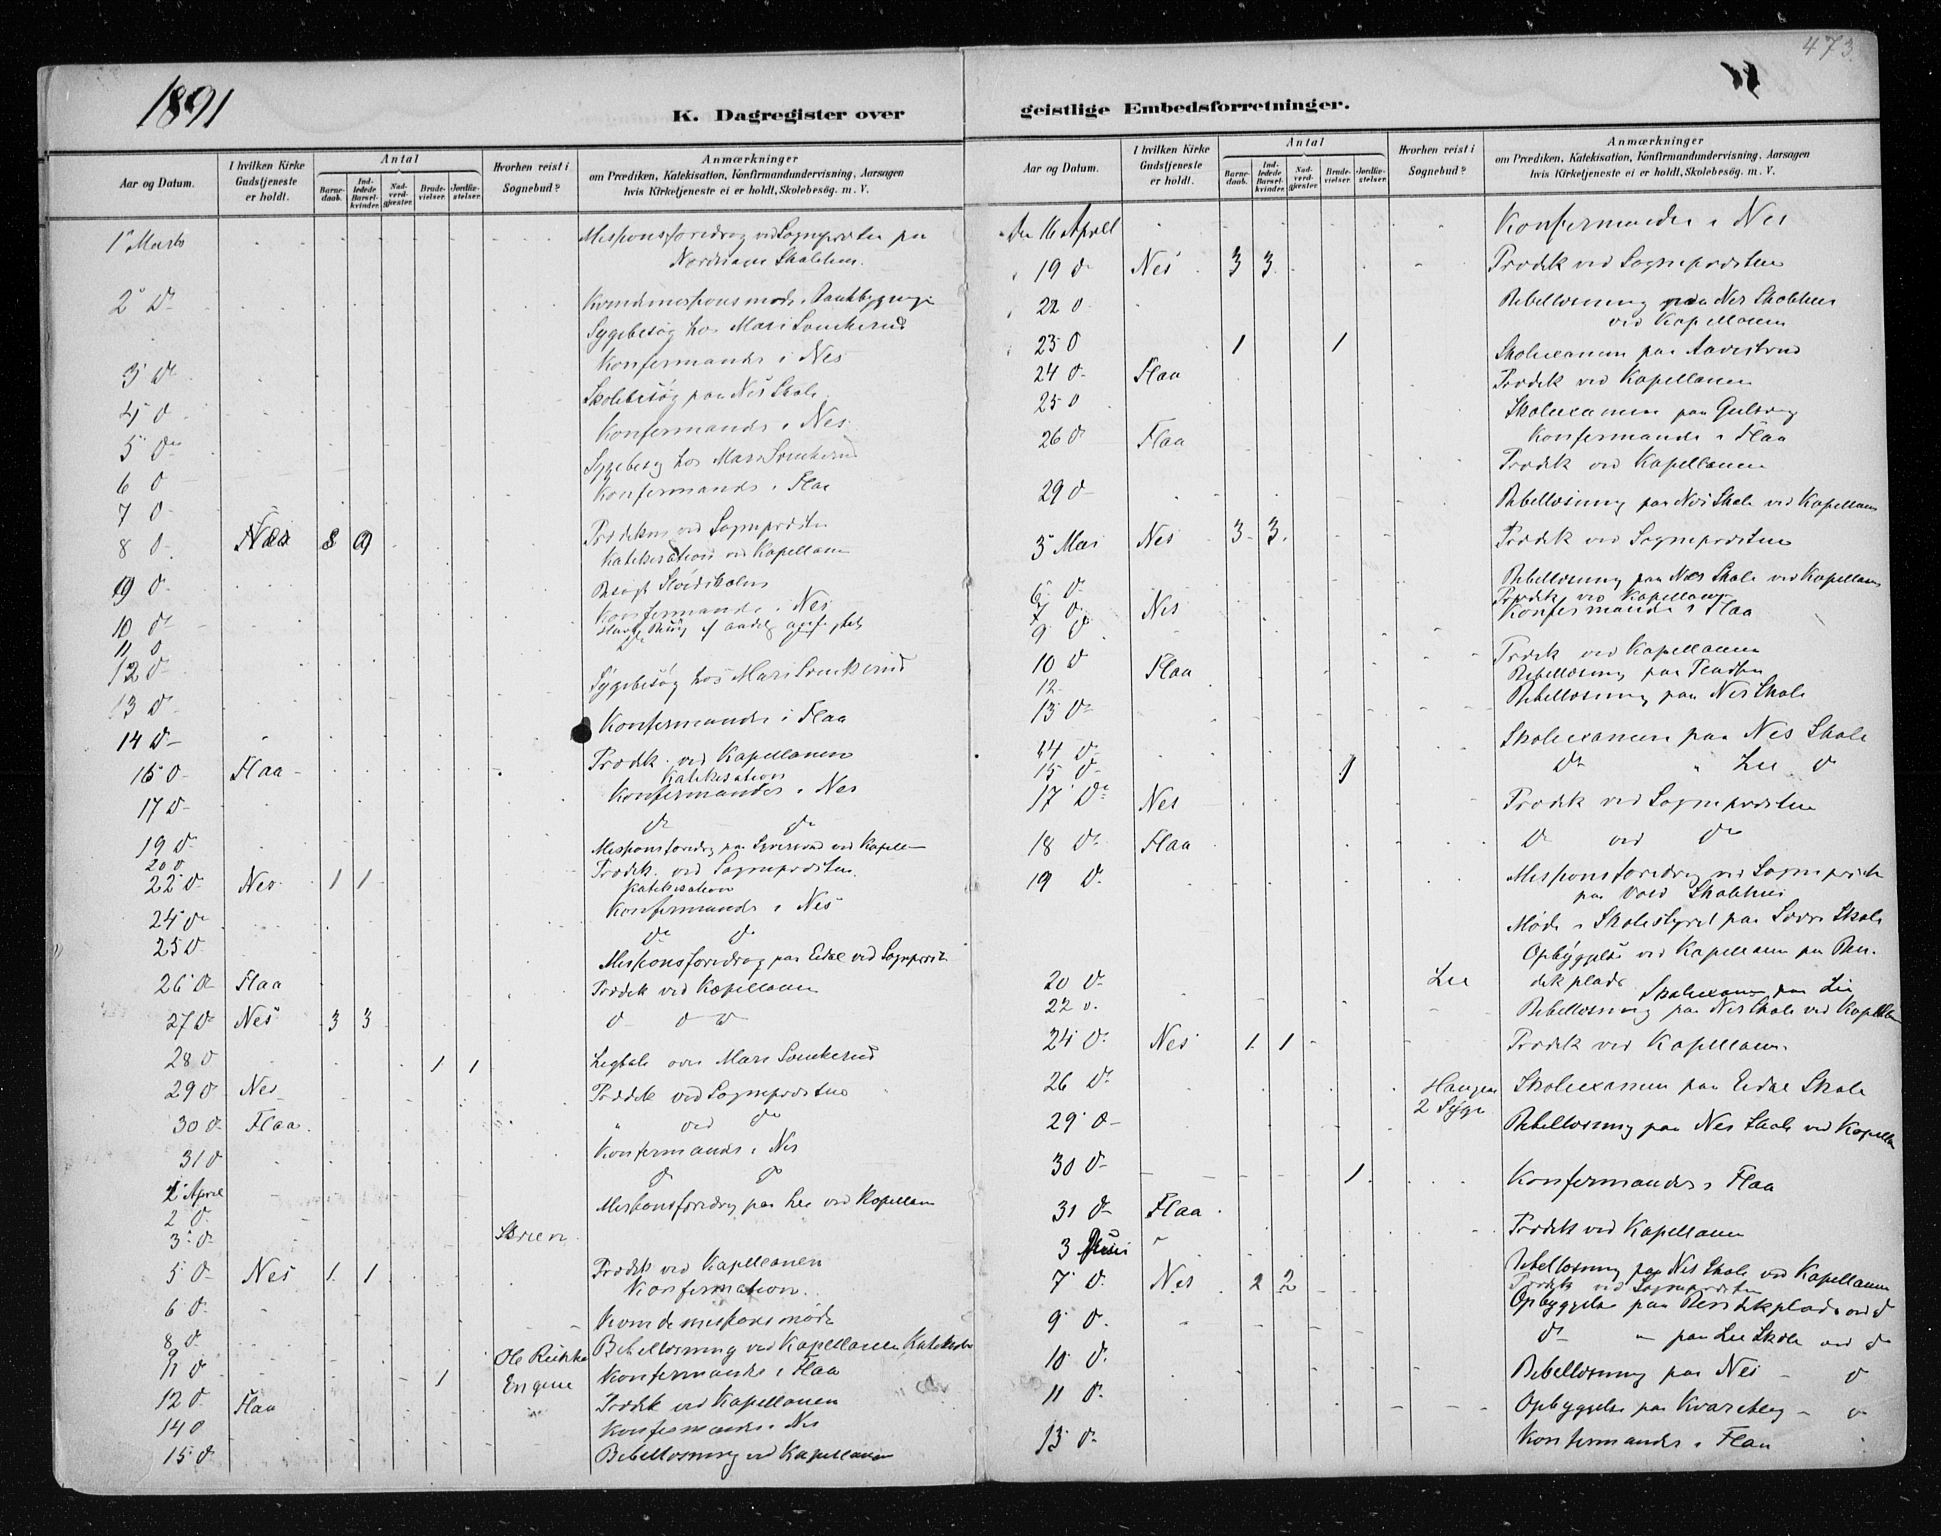 473
1891
K. Dagregister over
geistlige Embedsforretninger.
Aar og Datum.
I hvilken Kirke Gudstjeneste er holdt.
Antal
Barnedaab.
Indledede Barselkvinder.
Nadverdgjæster.
Brudevielser.
Jordfæstelser.
Hvorhen reist i Sognebud?
Anmærkninger
om Prædiken, Katekisation, Konfirmandundervisning, Aarsagen
hvis Kirketjeneste ei er holdt, Skolebesög. m. V.
1 Marts Missionsforedrag ved Sognepresten paa
Skolehus.
2 D
Sygebesøg hos Mari
3 D Konfermander i Nes
4 D Skolebesøg paa Nes Skole
5 D Konfermander i Nes
6 D Sygebesøg hos Mari
7 D Konfermander i Flaa
8 D 8 9 Prædiken ved Sognepresten
Katekisation ved Kapellanen
9 D Besøgt
10 D Konfermander i Nes
11 D
12 D Sygebesøg hos Mari
13 D
14 D Konfermander i Flaa
15 D Flaa Prædik. ved Kapellanen
Katekisation
17 D Konfermander i Nes
19 D D D
20 D Missionsforedrag paa ved
22 D Nes 1 1 Prædik. ved Sognepresten
Katekisation
24 D Konfermander i Nes
25 D D D
Missionsforedrag paa Eidal ved
26 D Flaa Prædik ved Kapellanen
27 D Nes 3 3 D D D
28 D 1 1 over Mari
29 D Nes Prædik ved Sognepresten
30 D Flaa " ved D
31 D Konfermander i Nes
1 April D D
2 D Missionsforedrag paa Lie ved Kapellanen
3 D
5 D Nes 1 1 Prædik ved Kapellanen
Konfermation.
6 D Kvindemissionsmøde
8 D Bibellæsning ved Kapellanen
11 D 1 Konfermander i Flaa
12 D Flaa Prædik ved Kapellanen
14 D Konfermander i Nes
15 D Bibellæsning ved Kapellanen
Aar og Datum.
I hvilken Kirke Gudstjeneste er holdt.
Antal
Barnedaab.
Indledede Barselkvinder.
Nadverdgjæster.
Brudevielser.
Jordfæstelser.
Hvorhen reist i Sognebud?
Anmærkninger
om Prædiken, Katekisation, Konfirmandundervisning, Aarsagen
hvis Kirketjeneste ei er holdt, Skolebesög. m. V.
16 April Konfermander i Nes
19 D Nes 3 3 Prædik ved Sognepresten
22 D Bibellæsning paa Nes Skolehus
ved Kapellanen
23 D 1 1 Skoleexamen paa
24 D Flaa Prædik ved Kapellanen
25 D Skoleexamen paa Gulsvig
26 D Flaa Konfermander i Flaa
Prædik ved Kapellanen
29 D Bibellæsning paa Nes Skole ved Kapellanen
3 Mai Nes 3 3 Prædik ved Sognepresten
6 D Bibellæsning paa Nes Skole ved Kapellanen
7 D Nes Prædik ved Kapellanen
9 D Konfermander i Flaa
10 D Flaa Prædik ved Kapellanen
12 Bibellæsning paa
13 D Bibellæsning paa Nes Skole
14 D Skoleexamen paa Nes Skole
15 D 1 D " Lie D
17 D Nes Prædik ved Sognepresten
18 D Flaa D ved D
19 D Missionsforedrag ved
paa Skolehus
Møde i Skolestyret paa Skole
Opbyggelse ved Kapellanen paa
20 D Lie Skoleexamen paa Lie
22 D Bibellæsning paa Nes Skole ved Kapellanen
24 D Nes 1 1 Prædik ved Kapellanen
26 D Haugen Skoleexamen paa Eidal Skole
2 Syge
29 D Bibellæsning paa Nes Skole ved Kapellanen
30 D 1 Konfermander i Flaa
31 D Flaa Prædik ved Kapellanen
3 Juni Bibellæsning paa Nes Skole ved Kapellanen
7 D Nes 2 2 Prædik ved Sognepresten
9 D Opbyggelse paa ved D
10 D D " paa Lie Skole ved D
11 D Bibellæsning paa Nes - D
Opbyggelse paa - D
13 D Konfermander i Flaa